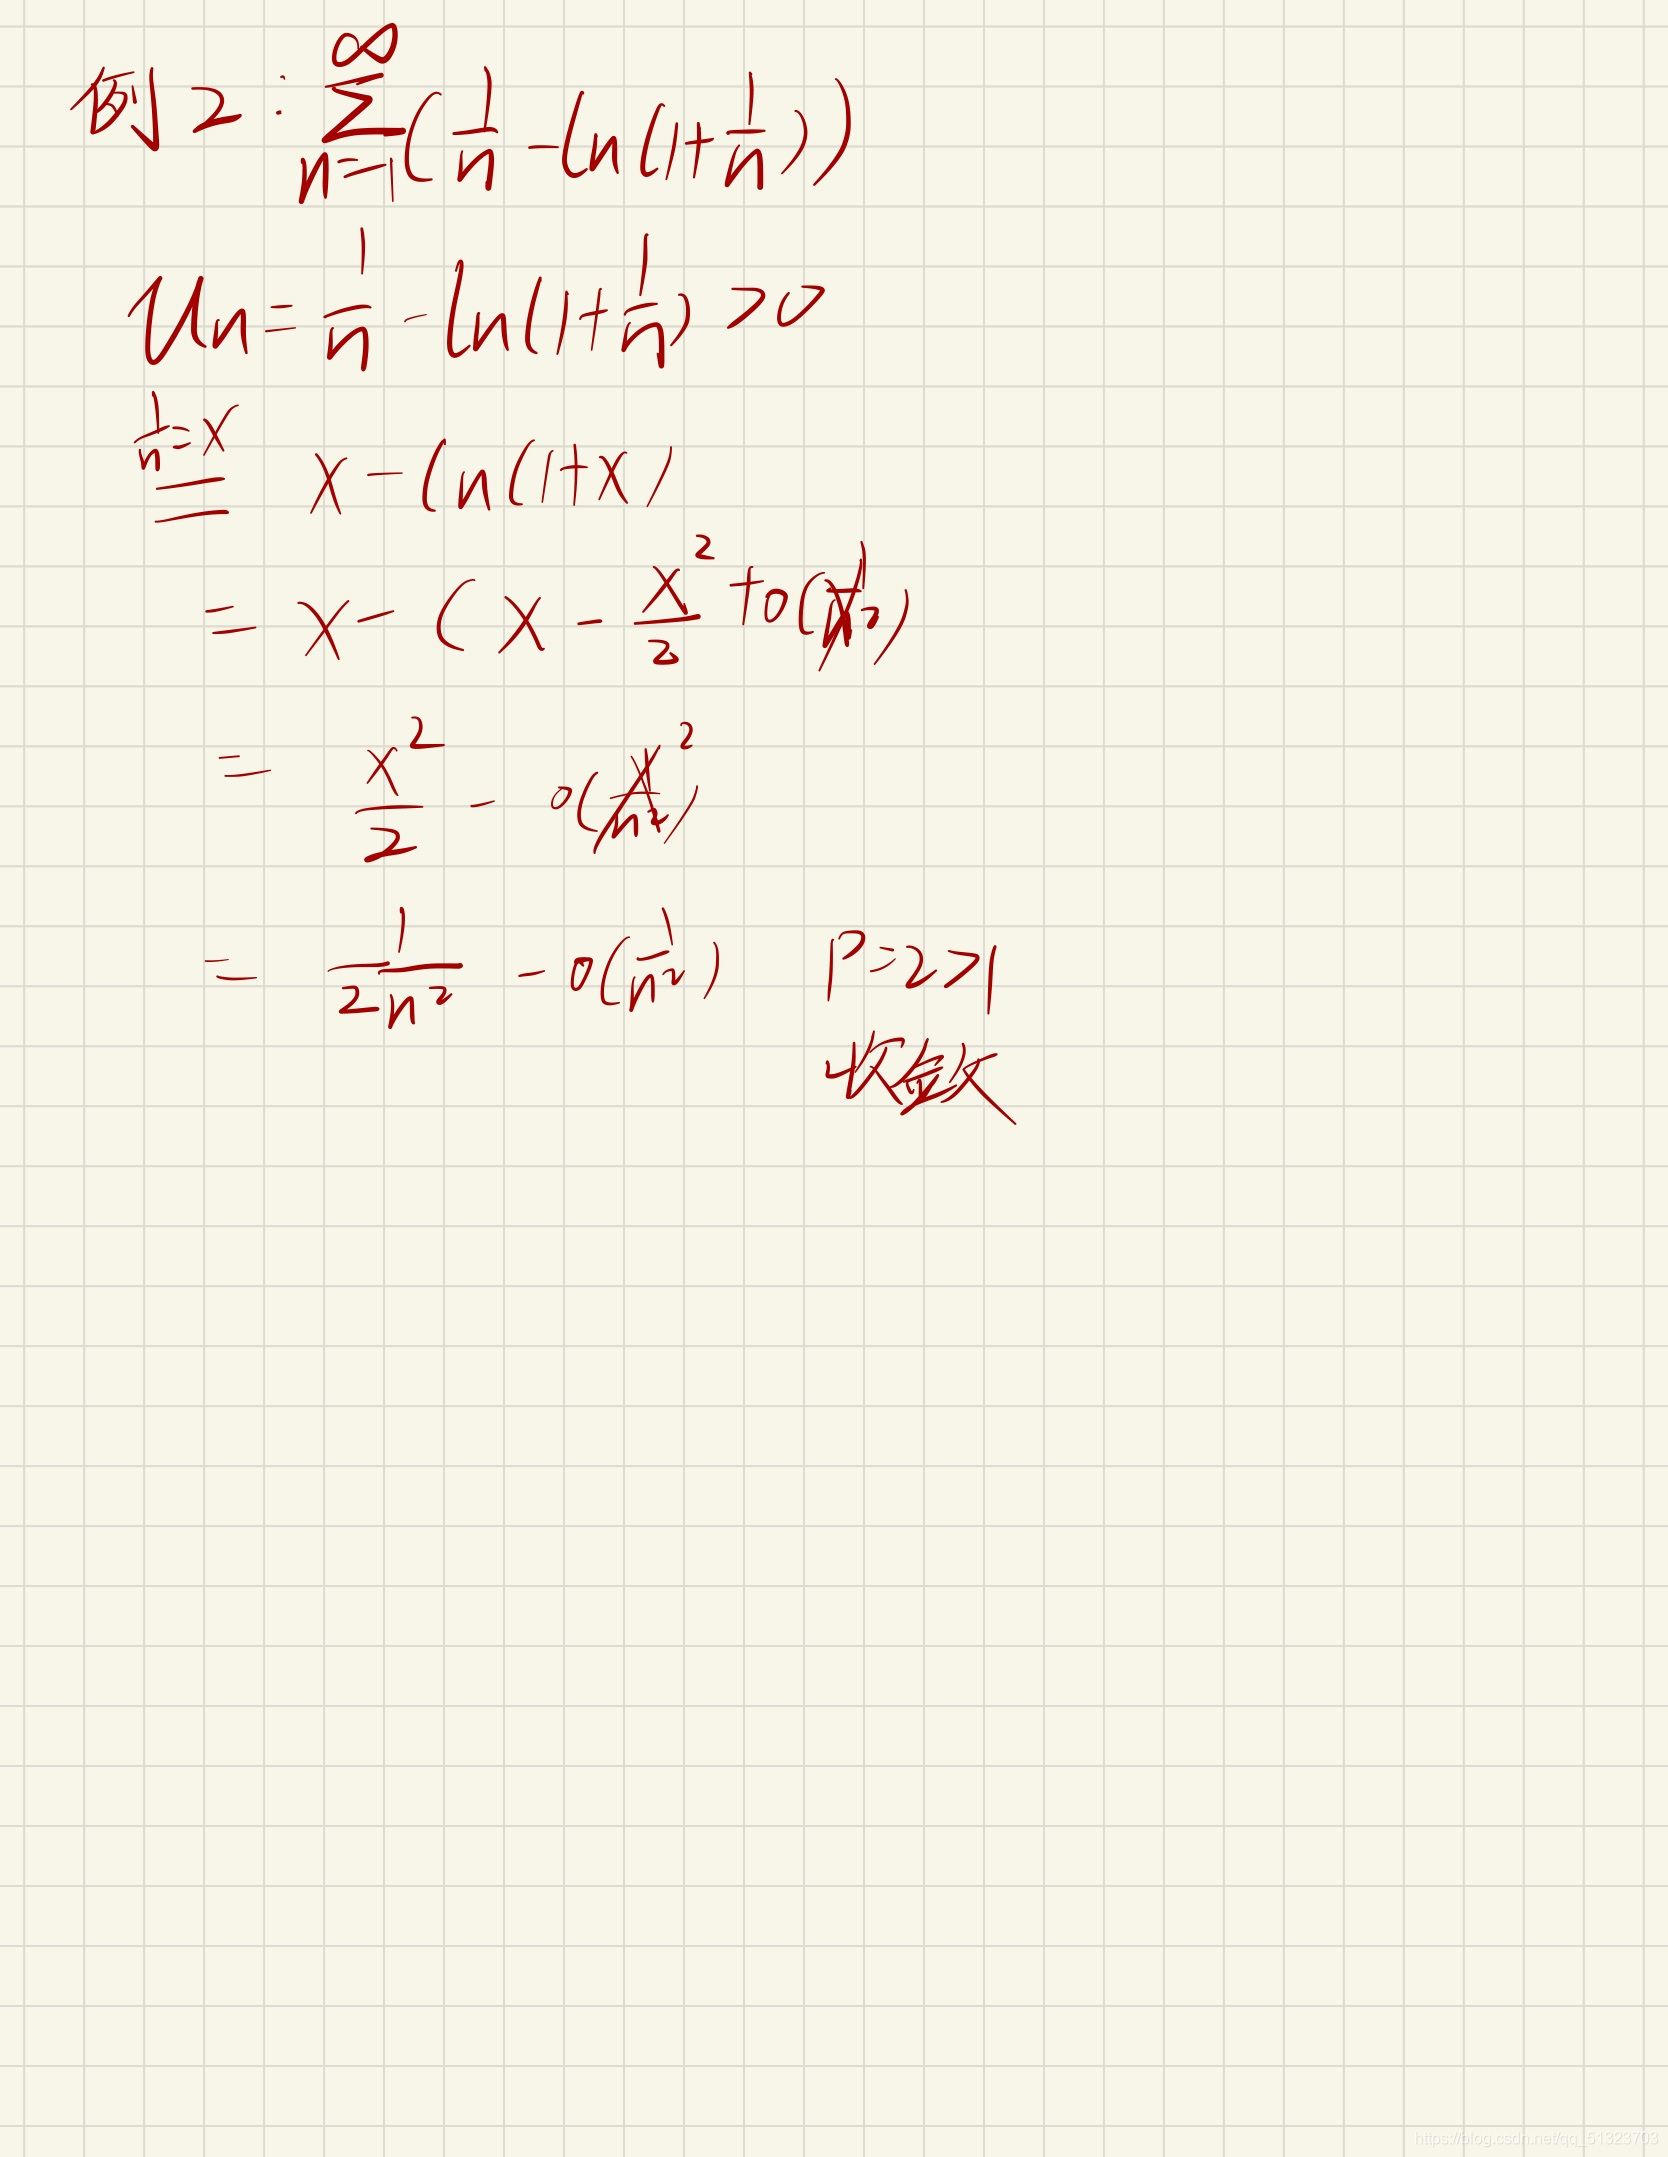 例2: ∑_{n=1}^{∞} (1/n - ln(1+1/n))
Un = 1/n - ln(1+1/n) > 0
1/n = x
= x - ln(1+x)
= x - (x - x²/2 + o(x²)
= x²/2 - o(x²)
= 1/2n² - o(1/n²) P=2>1
收敛
https://blog.csdn.net/qq_51323703